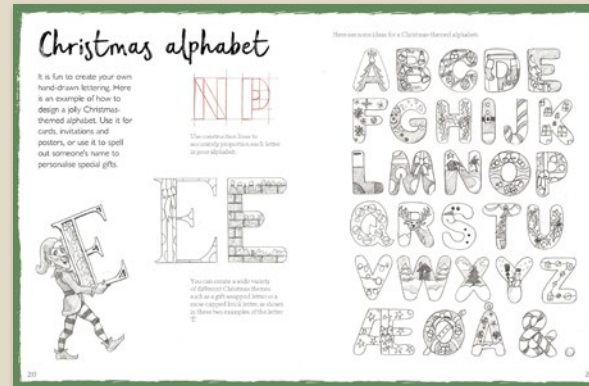 Christmas alphabet
It is fun to create your own
hand-drawn lettering. Here
is an example of how to
design a jolly Christmas-
themed alphabet. Use it for
cards, invitations and
posters, or use it to spell
out someone's name to
personalise special gifts.
NP
Use construction lines to
accurately proportion each letter
in your alphabet.
E
E E
You can create a wide variety
of different Christmas themes
such as a gift-wrapped letter or a
snow-capped brick letter, as shown
in these two examples of the letter
'E'.
20
Here are some ideas for a Christmas-themed alphabet.
ABCDE
FGHIJK
LMNOP
QRSTU
VWXYZ
ÆØÅ&.
2